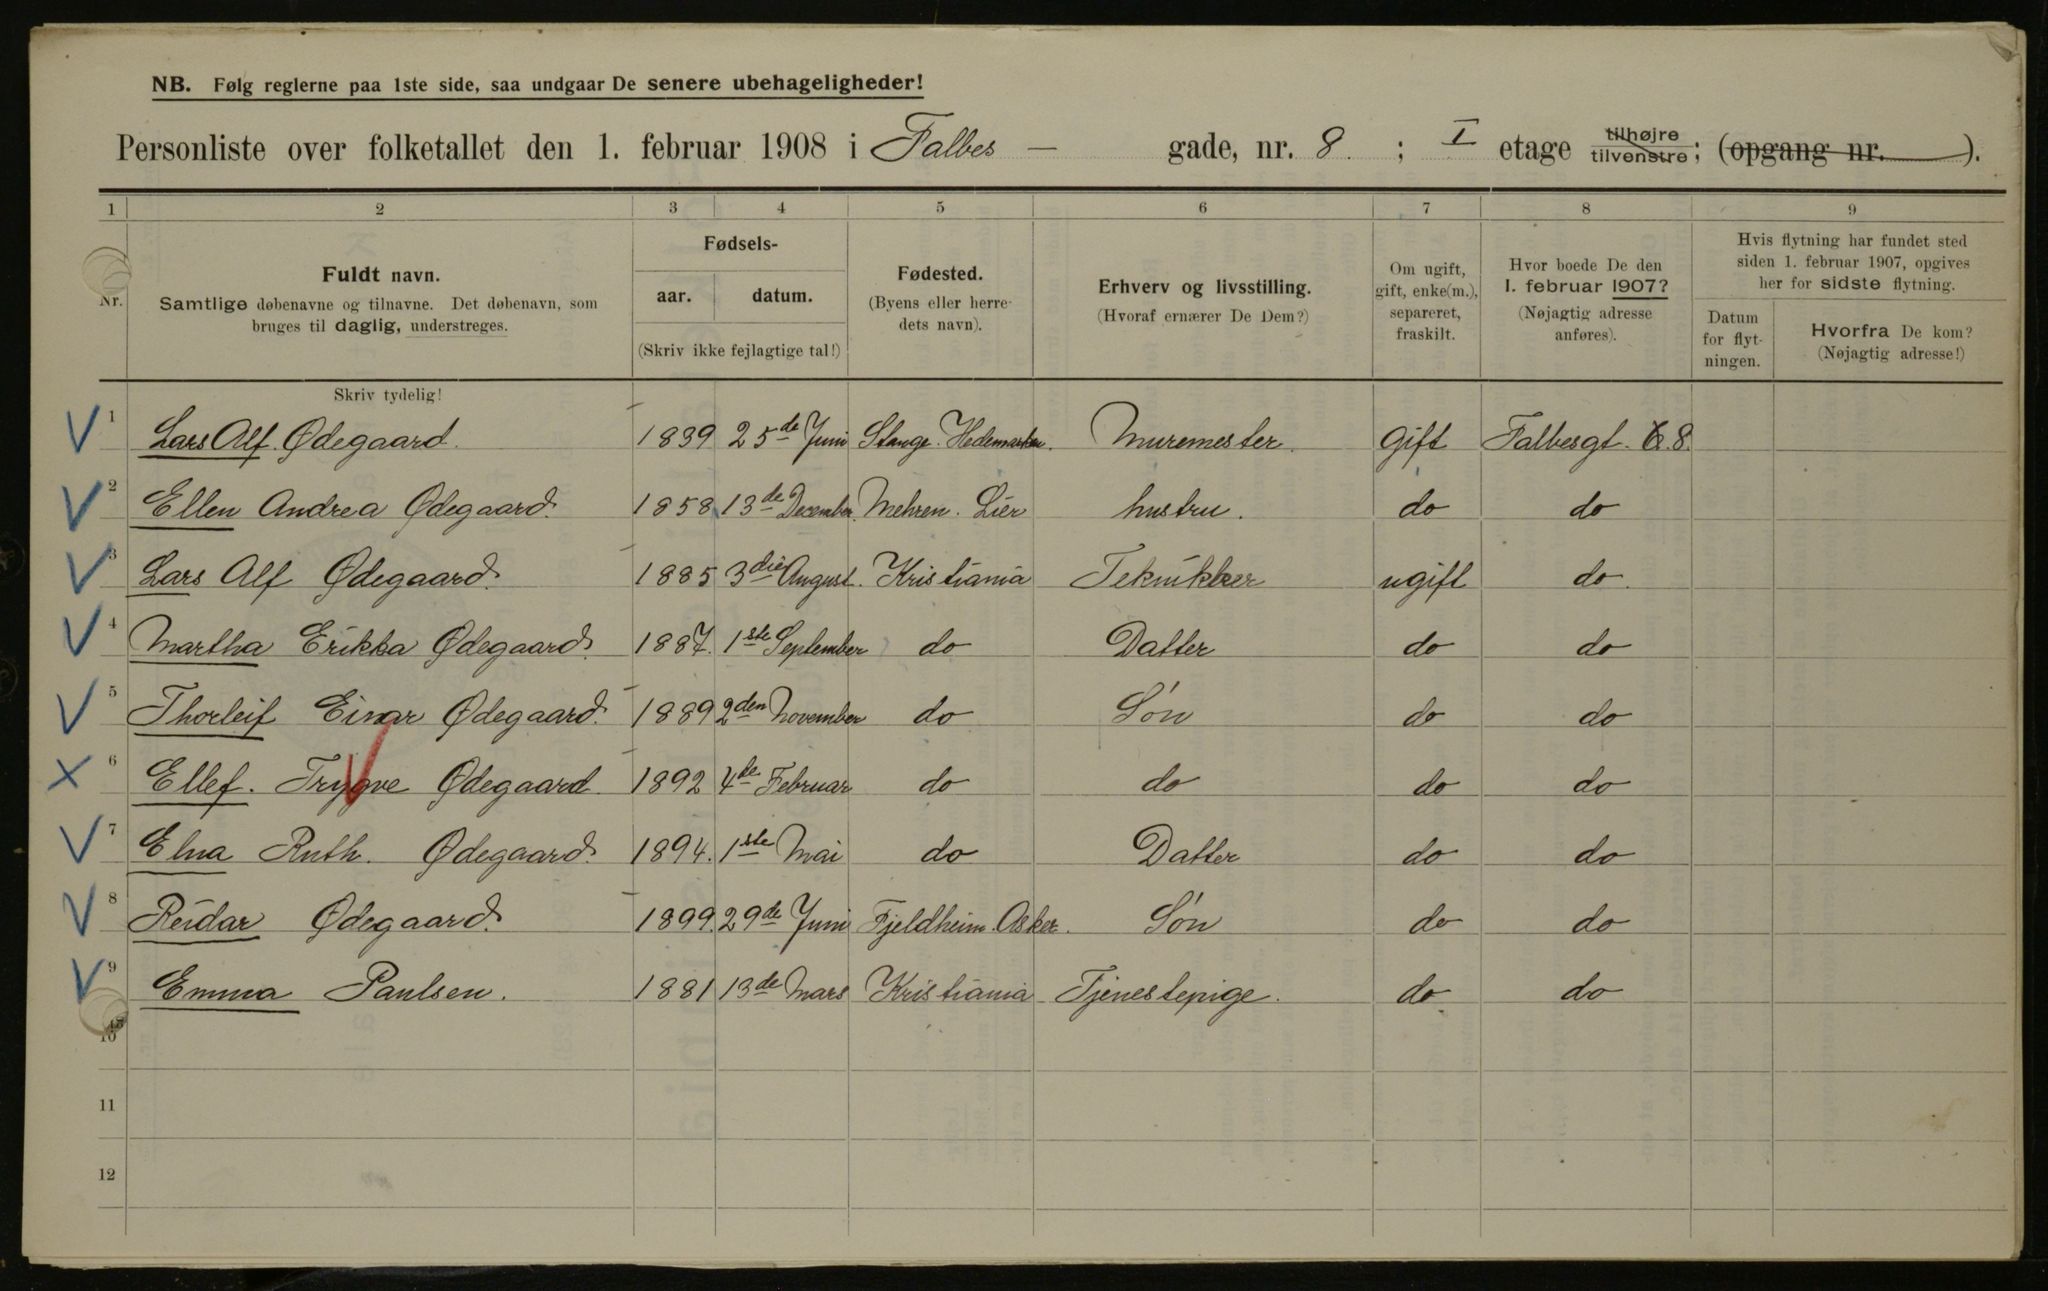 NB. Følg reglerne paa 1ste side, saa undgaar De senere ubehageligheder!
Personliste over folketallet den 1. februar 1908 i Falbes — gade, nr. 8. ; I etage tilhøjre tilvenstre; (opgang nr. ).
1 2 3 4 5 6 7 8 9
Nr.
Fuldt navn.
Samtlige døbenavne og tilnavne. Det døbenavn, som
bruges til daglig, understreges.
Skriv tydelig!
Fødsels-
aar. datum.
(Skriv ikke fejlagtige tal!)
Fødested.
(Byens eller herre-
dets navn).
Erhverv og livsstilling.
(Hvoraf ernærer De Dem?)
Om ugift,
gift, enke(m.),
separeret,
fraskilt.
Hvor boede De den
1. februar 1907?
(Nøjagtig adresse
anføres).
Hvis flytning har fundet sted
siden 1. februar 1907, opgives
her for sidste flytning.
Datum
for flyt-
ningen.
Hvorfra De kom?
(Nøjagtig adresse!)
1 Lars Alf. Ødegaard. 1839 25de Juni Stange. Hedemarken. Muremester. Gift Falbesgt. 8.
2 Ellen Andrea Ødegaard. 1858 13de December. Mehren. Lier hustru. do do
3 Lars Alf Ødegaard. 1885 3die August. Kristiania Teknikker ugift do.
4 Martha Erikka Ødegaard. 1887. 1ste September do Datter do do
5 Thorleif Einar Ødegaard. 1889 2den November do Søn do do
6 Ellef. Trygve Ødegaard. 1892 4de Februar do do do do
7 Elna Ruth. Ødegaard. 1894. 1ste Mai do Datter do do
8 Reidar Ødegaard. 1899. 29de Juni Fjeldheim. Asker. Søn do do
9 Emma Paulsen. 1881 13de Mars Kristiania Tjenestepige. do do
10
11
12